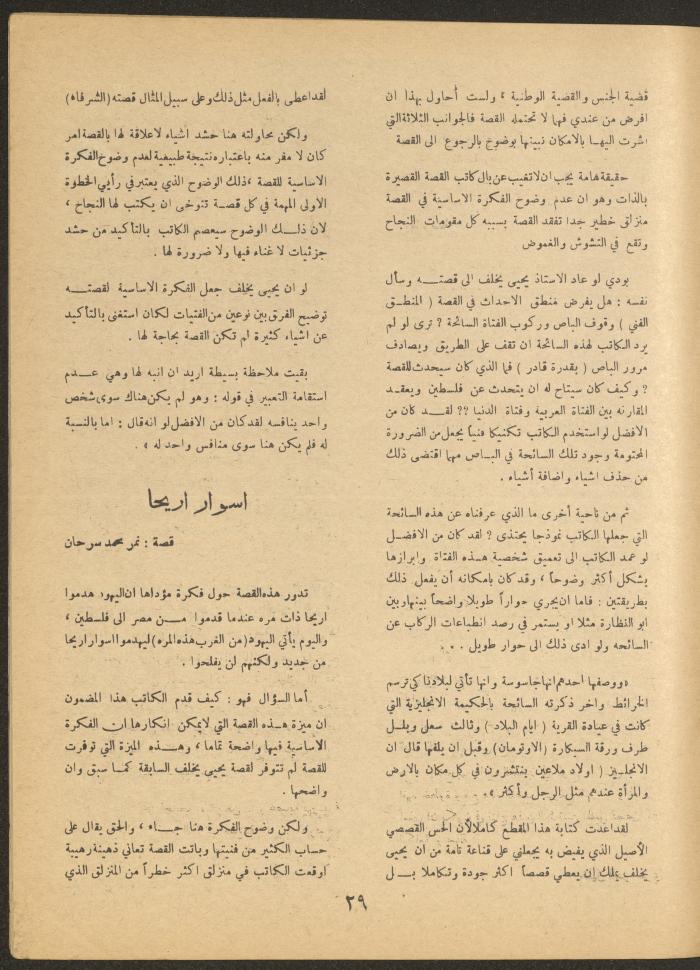 قضية الجنس والقضية الوطنية ، ولست أحاول بهذا ان
افرض من عندي فيها لا تحتمله القصة فالجوانب الثلاثة التي
اشرت اليهـا بالامكان نبينها بوضوح بالرجوع الى القصة
حقيقة هامة يجب ان لا تغيب عن بال كاتب القصة القصيرة
بالذات وهو ان عدم وضوح الفكرة الاساسية في القصة
منزلق خطير جدا تفقد القصة بسببه كل مقومات النجاح
وتقع في التشوش والغموض
بودي لو عاد الاستاذ يحيى يخلف الى قصتـــه وسأل
نفسه : هل يفرض منطق الاحداث في القصة ( المنطـق
الفني ) وقوف الباص وركوب الفتاة السائحة ? ترى لو لم
يرد الكاتب لهذه السائحة ان تقف على الطريق ويصادف
مرور الباص ( بقدرة قادر ) فما الذي كان سيحدث للقصة
? وكيف كان سيتاح له ان يتحدث عن فلسطين ويعقـد
المقارنه بين الفتاة العربية وفتاة الدنيا ?? لقـــد كان من
الافضل لو استخدم الكاتب تكنيكا فنياً يجعل من الضرورة
المحتومة وجود تلك السائحة في البـاص مهما اقتضى ذلك
من حذف اشياء واضافة أشياء .
ثم من ناحية أخرى ما الذي عرفناه عن هذه السائحة
التي جعلها الكاتب نموذجا يحتذى ? لقد كان من الافضـل
لو عمد الكاتب الى تعميق شخصية هـذه الفتاة وابرازها
بشكل أكثر وضوحاً ، وقد كان بامكانه أن يفعل ذلك
بطريقتين : فاما ان يجري حواراً طويلا واضحاً بينها وبين
ابو النظارة مثلا او يستمر في رصد انطباعات الركاب عن
السائحه ولو ادى ذلك الى حوار طويل . . .
« ووصفها احدهم انها جاسوسة وانها تأتي لبلادنا كي ترسم
الخرائط واخر ذكرته السائحة بالحكيمة الانجليزية التي
كانت في عيادة القرية ( ايام البلاد ) وثالث سعل وبلـل
طرف ورقة السيكارة ( الاوتومان ) وقبل ان يلفها قال ان
الانجلـيز ( اولاد ملاعين ينتشرون في كل مكان بالارض
والمرأة عندهم مثل الرجل وأكثر » .
لقد اعدت كتابة هذا المقطع كاملا لأن الحس القصصي
الأصيل الذي يفيض به يجعلني على قناعة تامة من ان يحيى
يخلف يملك ان يعطي قصصاً اكثر جودة وتكاملا بـــل
لقد اعطى بالفعل مثل ذلك وعلى سبيل المثال قصته (الشرفاه)
ولكن محاولته هنا حشد اشياء لا علاقة لها بالقصة امر
كان لا مفر منه باعتباره نتيجة طبيعية لعدم وضوح الفكرة
الاساسية للقصة ، ذلك الوضوح الذي يعتبر في رأيي الخطوة
الاولى المهمة في كل قصـة تتوخى ان يكتب لها النجاح ،
لان ذلـــك الوضوح سيعصم الكاتب بالتأكيد من حشد
جزئيات لا غناء فيها ولا ضرورة لها .
لو ان يحيى يخلف جعل الفكرة الاساسية لقصتـــه
توضيح الفرق بين نوعين من الفتيات لكان استغنى بالتأكيد
عن اشياء كثيرة لم تكن القصة بحاجة لها .
بقيت ملاحظة بسيطة اريد ان انبه لها وهي عـــدم
استقامة التعبير في قوله : وهو لم يكن هناك سوى شخص
واحد ينافسه لقد كان من الافضل لو انه قال : اما بالنسبة
له فلم يكن هنا سوى منافس واحد له » .
اسوار اريحا
قصة : نمر محمد سرحان
تدور هذه القصة حول فكرة مؤداها ان اليهود هدموا
اريحا ذات مره عندما قدموا مـــن مصر الى فلسطين ،
واليوم يأتي اليهود (من الغرب هذه المره) ليهدموا اسوار اريحا
من جديد ولكنهم لن يفلحوا .
أما السؤال فهو : كيف قدم الكاتب هذا المضمون
ان ميزة هـذه القصة التي لا يمكن انكارها ان الفكرة
الاساسية فيها واضحة تماما ، وهـــذه الميزة التي توفرت
للقصة لم تتوفر لقصة يحيى يخلف السابقة كمـا سبق وان
واضحها .
ولكن وضوح الفكرة هنا جـــاء ، والحق يقال على
حساب الكثير من فنيتها وباتت القصة تعاني ذهينة رهيبة
اوقعت الكاتب في منزلق اكثر خطراً من المنزلق الذي
٢٩